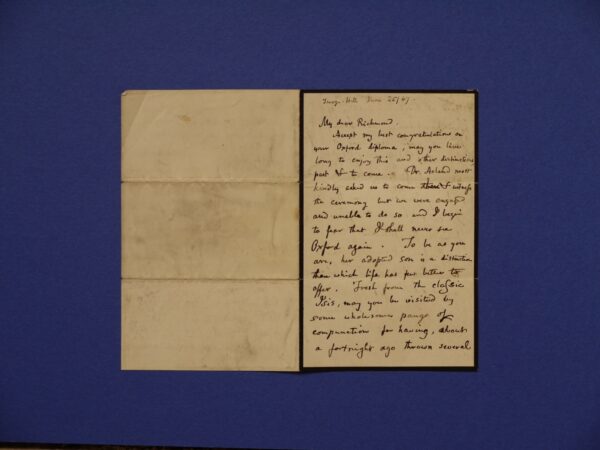 June 26/67
My dear Richmond.
Accept my best congratulations on
your Oxford diploma, may you live
long to enjoy this and other distinctions
past & to come. Dr. Acland most
kindly asked us to come & witness
the ceremony but we were engaged
and unable to do so and I begin
to fear that I shall never see
Oxford again. To be as you
are, her adopted son is a distinction
than which life has few better to
offer. Fresh from the classic
Isis, may you be visited by
some wholesome pangs of
compunction for having, about
a fortnight ago thrown several